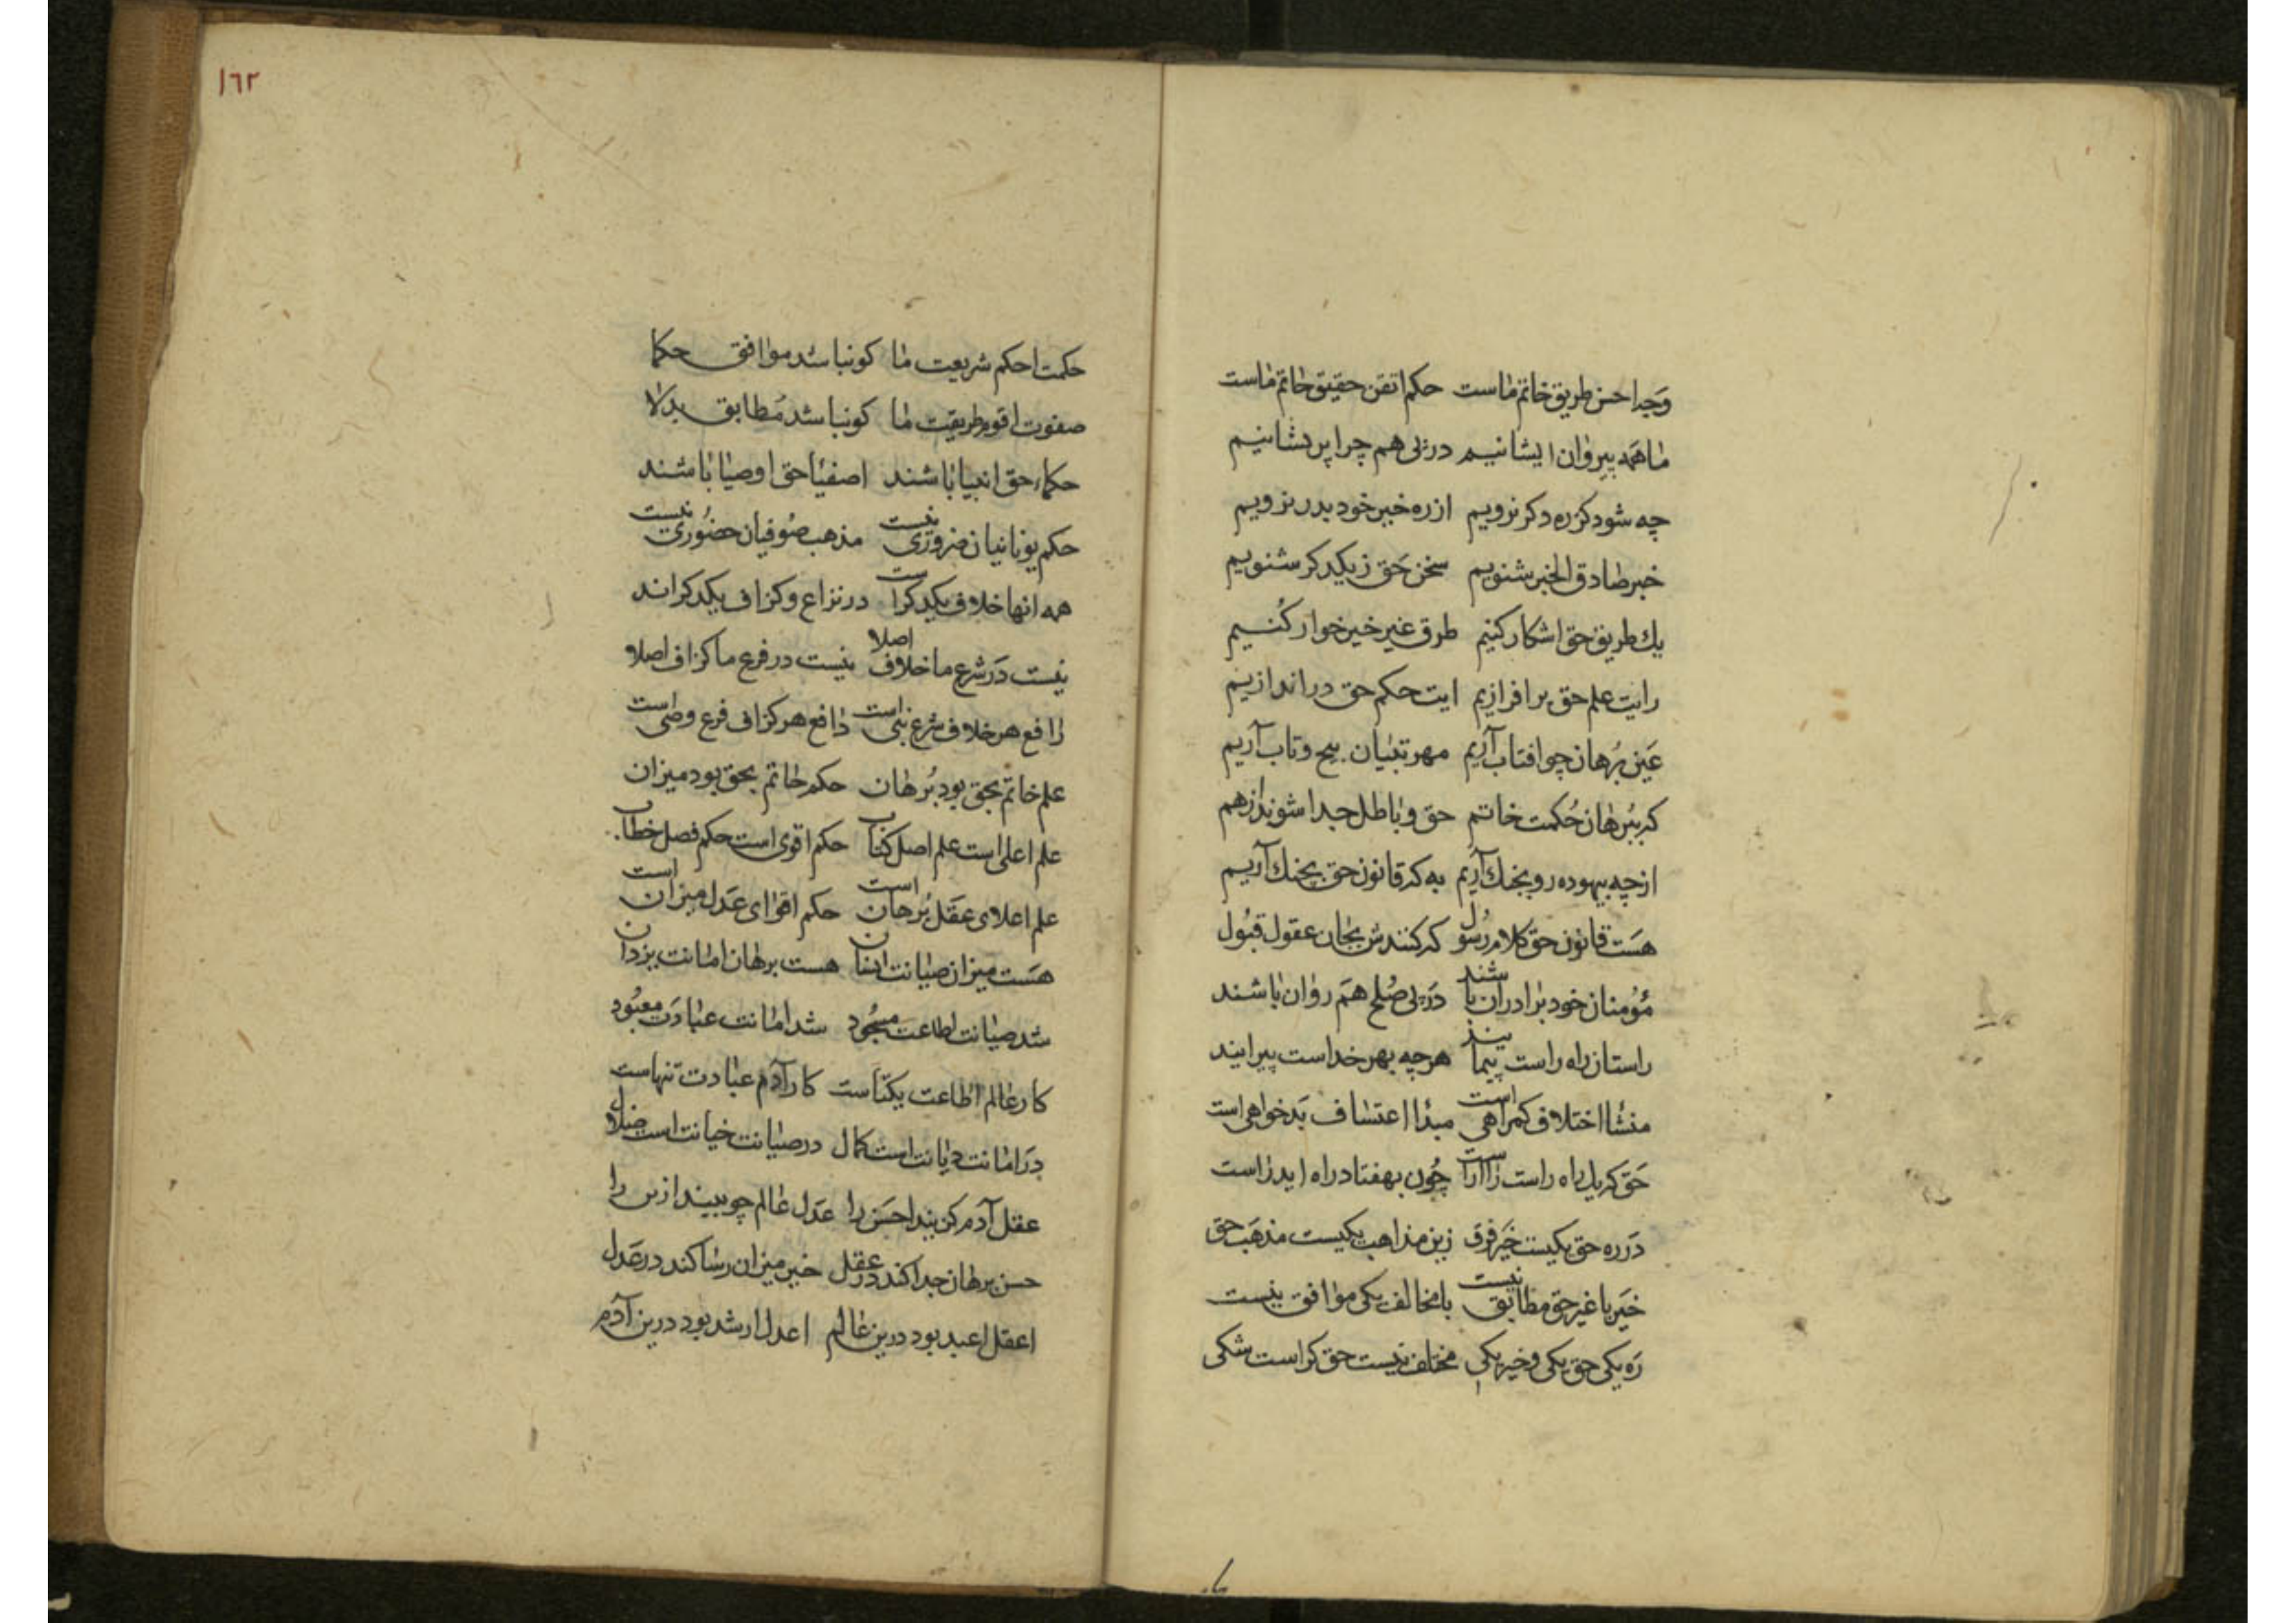 وجه احسن طریق خاتم ماست حکم اتقن حقیق خاتم ماست
ما همه پیروان ایشانیم در پی هم چرا پریشانیم
چه شود کز ره دکر نرویم از ره خیر خود بدر نرویم
خبر صادق الخبر شنویم سخن حق ز یکدکر شنویم
یك طریق حق اشکار کنیم طرق غیر خیر خوار کنیم
رایت علم حق بر افرازیم ایت حکم حق در اندازیم
عین برهان چو افتاب آریم مهر تبیان بیح و تاب آریم
که ببرهان حکمت خاتم حق و باطل جدا شوند از هم
از چه بیهوده رو بجنك آریم به که قانون حق بجنك آریم
هست قانون حق کلام رسول که کنندش بجان عقول قبول
مؤمنان خود برادران باشند در پی صلح هم روان باشند
راستان راه راست پیمایند هر چه بهر خداست پیرایند
منشأ اختلاف کمراهی است مبدأ اعتساف بدخواهی است
حق که یك راه راست را آراست چون بهفتاد راه اید راست
در ره حق یکیست خیر فرق زین مذاهب یکیست مذهب حق
خیر با غیر حق مطابق نیست با مخالف یکی موافق نیست
ره یکی حق یکی و خیر یکی مختلف نیست حق کراست شکی
١٦٢
حکمت احکم شریعت ما کو نباشد موافق حکما
صفوت اقوم طریقت ما کو نباشد مطابق بدلا
حکماء حق انبیا باشند اصفیا حق اوصیا باشند
حکم یونانیان ضروری نیست مذهب صوفیان حضوری نیست
همه انها خلاف یکدکراست در نزاع و کزاف یکدکراند
نیست در شرع ما خلاف اصلا نیست در فرع ما کزاف اصلا
رافع هر خلاف شرع نبی است دافع هر کزاف فرع وصی است
علم خاتم بحق بود برهان حکم خاتم بحق بود میزان
علم اعلی است علم اصل کتاب حکم اقوی است حکم فصل خطاب
علم اعلای عقل برهان است حکم اقوای عدل میزان است
هست میزان صیانت انسان هست برهان امانت یزدان
شد صیانت اطاعت مسجود شد امانت عبادت معبود
کار عالم اطاعت یکتاست کار آدم عبادت تنهاست
در امانت دیانت است کمال در صیانت خیانت است ضلال
عقل آدم کزیند احسن را عدل عالم چو بیند ازین را
حسن برهان جدا کند در عقل خیر میزان رسا کند در عدل
اعقل اعبد بود درین عالم اعدل ارشد بود درین آدم